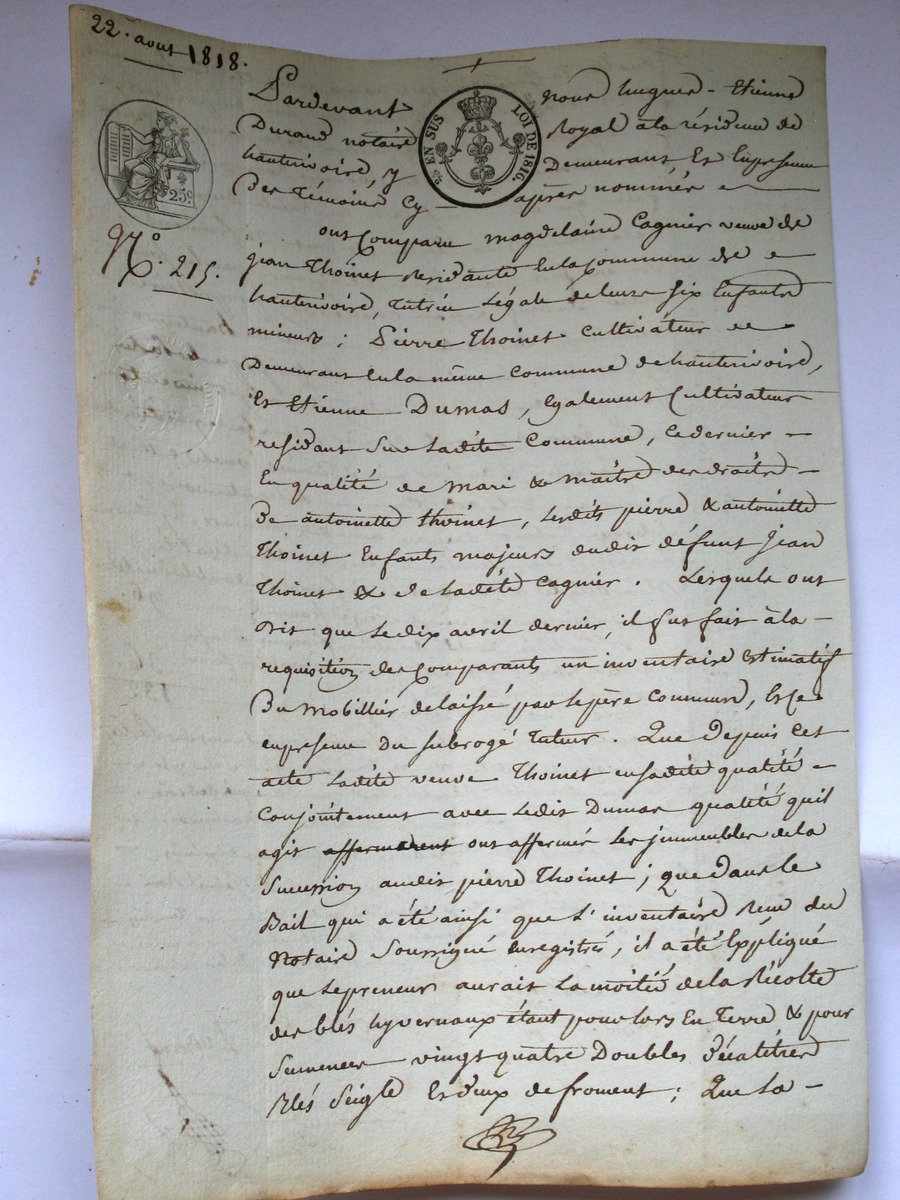 22. aout 1818.
Pardevant nous hugues - Etienne
Durand notaire Royal à la résidence de
hauterivoire, y Demeurant Et En presence
Des Témoins Cy après nommés
25 c
EN SUS LOI DE 1816.
N° 215.
ont Comparu magdelaine Cagnier veuve de
jean Thoinet residante En la Commune de
hauterivoire, tutrice Légale de leurs six Enfants
mineurs ; Pierre Thoinet Cultivateur
Demeurant En la même Commune de hauterivoire,
Et Etienne Dumas, Egalement Cultivateur
residant Sur Ladite Commune, Ce dernier -
En qualité de mari & maître des droits -
De antoinette thoinet, Lesdits pierre & antoinette
Thoinet Enfants majeurs dudit défunt Jean
Thoinet & de Ladite Cagnier. Lesquels ont
Dit que Le dix avril dernier, il fut fait à la -
requisition des Comparants un inventaire Estimatif
Du Mobillier delaissé par Le père Commun, Et Ce
en presence du subrogé tuteur. Que Depuis Cet
acte Ladite veuve Thoinet en sadite qualité -
Conjointement avec Ledit Dumas qualité qu'il
agit affermerent ont affermé Les immeubles de la
Sucession audit pierre Thoinet ; que Dans Le
Bail qui a été ainsi que L'inventaire Reçu du
Notaire Soussigné Enregistrés, il a été Expliqué
que Le preneur aurait La moitié de la Récolte
des blés hyvernaux étant pour lors En Terre & pour
Semences vingt quatre Doubles Décalitres
Blés Seigle Et deux de froment ; Que La -